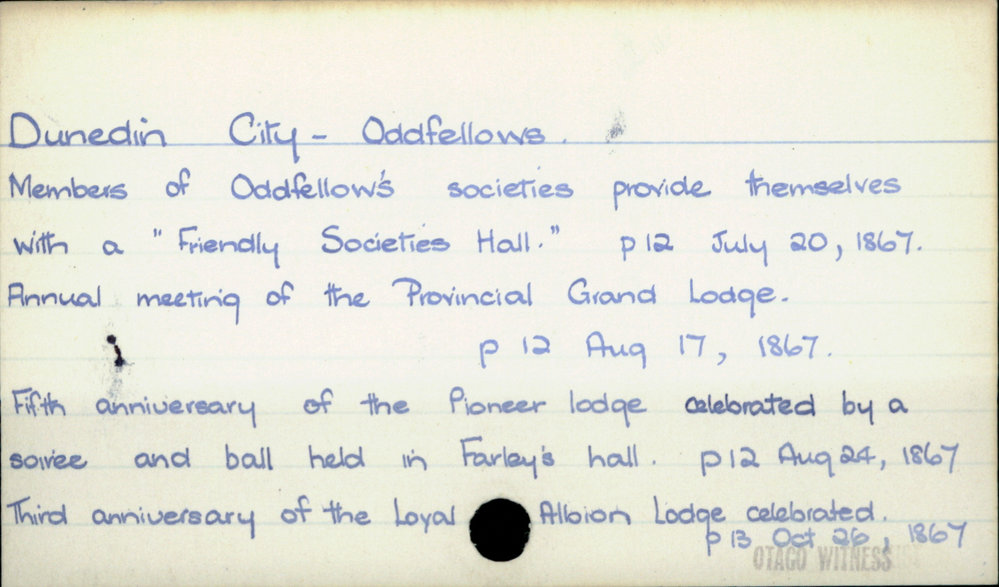 Dunedin City - Oddfellows.
Members of Oddfellow's societies provide themselves
with a "Friendly Societies Hall." p 12 July 20, 1867.
Annual meeting of the Provincial Grand Lodge.
p 12 Aug 17, 1867.
Fifth anniversary of the Pioneer lodge celebrated by a
soiree and ball held in Farley's hall. p 12 Aug 24, 1867
Third anniversary of the Loyal Albion Lodge celebrated.
p 13 Oct 26, 1867
OTAGO WITNESS